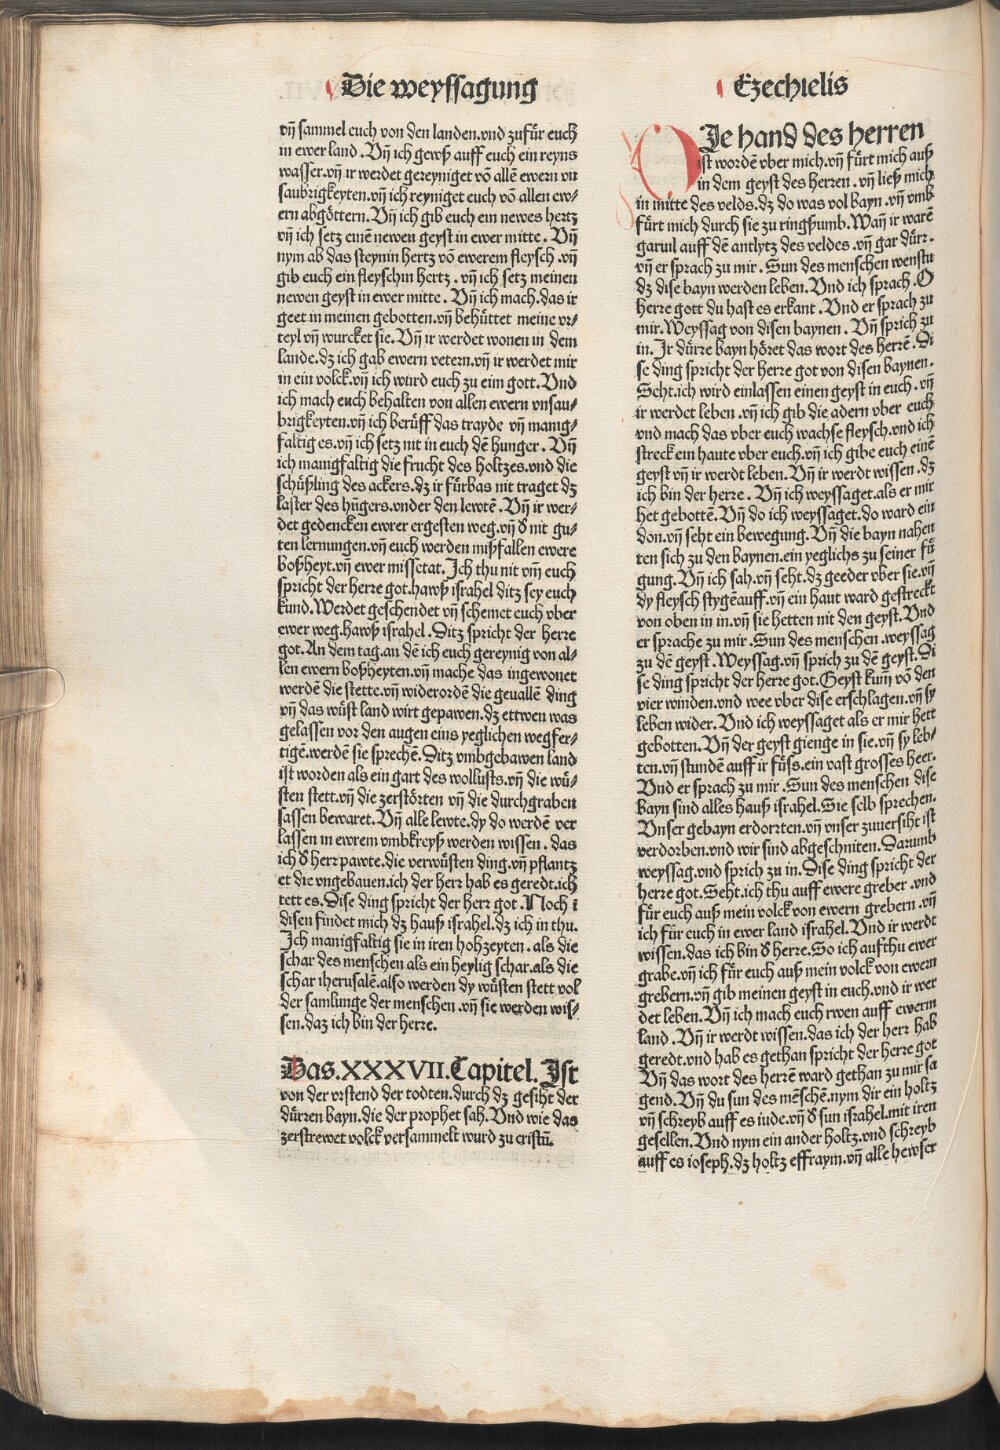 Die weyssagung
vñ sammel euch von den landen.vnd zufür euch
in ewer land. Vñ ich gewß auff euch ein reyns
wasser.vñ ir werdet gereyniget vō allē ewern vn
saubrigkeyten.vñ ich reyniget euch vō allen ew⸗
ern abgöttern. Vñ ich gib euch ein newes hertz
vñ ich setz einē newen geyst in ewer mitte. Vñ
nym ab das steynin hertz vō ewerem fleysch.vñ
gib euch ein fleyschin hertz.vñ ich setz meinen
newen geyst in ewer mitte. Vñ ich mach.das ir
geet in meinen gebotten.vñ behüttet meine vr⸗
teyl vñ wurcket sie. Vñ ir werdet wonen in dem
lande.dz ich gab ewern vetern.vñ ir werdet mir
in ein volck.vñ ich wird euch zu eim gott. Vnd
ich mach euch behalten von allen ewern vnsau⸗
brigkeyten.vñ ich berüff das trayde vñ manig⸗
faltig es.vñ ich setz nit in euch dē hunger. Vñ
ich manigfaltig die frucht des holtzes.vnd die
schüßling des ackers.dz ir fürbas nit traget dz
laster des hūgers.vnder den lewtē. Vñ ir wer⸗
det gedencken ewrer ergesten weg.vñ d nit gu⸗
ten lernungen.vñ euch werden mißfallen ewere
boßheyt.vñ ewer missetat. Ich thu nit vm euch
spricht der herre got.hawß israhel ditz sey euch
kund.Werdet geschendet vñ schemet euch vber
ewer weg.hawß israhel. Ditz spricht der herre
got.An dem tag.an dē ich euch gereynig von al⸗
len ewern boßheyten.vñ mache das ingewonet
werdē die stette.vñ widerordē die geuallē ding
vñ das wüst land wirt gepawen.dz ettwen was
gelassen vor den augen eins yeglichen wegfer⸗
tigē.werdē sie sprechē. Ditz vmbgebawen land
ist worden als ein gart des wollusts.vñ die wü⸗
sten stett.vñ die zerstörten vñ die durchgraben
sassen bewaret. Vñ alle lewte.dy do werdē ver
lassen in ewrem vmbkreyß werden wissen. das
ich d herr pawte.die verwüsten ding.vñ pflantz
et die vngebauen.ich der herr hab es geredt.ich
tett es. Dise ding spricht der herr got. Noch ī
disen findet mich dz hauß israhel.dz ich in thu.
Ich manigfaltig sie in iren hohzeyten. als die
schar des menschen als ein heylig schar.als die
schar iherusalē.also werden dy wüsten stett vol
der samlunge der menschen.vñ sie werden wis⸗
sen.daz ich bin der herre.
Das.XXXVII.Capitel. Ist
von der vrstend der todten.durch dz gesiht der
dürren bayn.die der prophet sah.Vnd wie das
zerstrewet volck versammelt wurd zu cristū.
Ezechielis
DIe hand des herren
ist wordē vber mich.vñ fürt mich auß
in dem geyst des herren.vñ ließ mich
in mitte des velds.dz do was vol bayn.vñ vmb
fürt mich durch sie zu ringßumb.Wañ ir warē
garuil auff dē antlytz des veldes.vñ gar dürr.
vñ er sprach zu mir. Sun des menschen wenstu
dz dise bayn werden leben. Vnd ich sprach.O
herre gott du hast es erkant. Vnd er sprach zu
mir.Weyssag von disen baynen. Vñ sprich zu
in. Ir dürre bayn höret das wort des herrē. Di
se ding spricht der herre got von disen baynen.
Seht.ich wird einlassen einen geyst in euch.vñ
ir werdet leben.vñ ich gib die adern vber euch
vnd mach das vber euch wachse fleysch.vnd ich
streck ein haute vber euch.vñ ich gibe euch einē
geyst vñ ir werdt leben. Vñ ir werdt wissen.dz
ich bin der herre. Vñ ich weyssaget.als er mir
het gebottē. Vñ do ich weyssaget.do ward ein
don.vñ seht ein bewegung. Vñ die bayn nahen
ten sich zu den baynen.ein yeglichs zu seiner fü
gung. Vñ ich sah.vñ seht.dz geeder vber sie.vñ
dy fleysch stygēauff.vñ ein haut ward gestreckt
von oben in in.vñ sie hetten nit den geyst. Vnd
er sprache zu mir. Sun des menschen.weyssag
zu dē geyst. Weyssag.vñ sprich zu dē geyst. Di
se ding spricht der herre got.Geyst kum vō den
vier winden.vnd wee vber dise erschlagen.vñ sy
leben wider. Vnd ich weyssaget als er mir hett
gebotten. Vñ der geyst gienge in sie.vñ sy leb⸗
ten.vñ stundē auff ir füss.ein vast grosses heer.
Vnd er sprach zu mir. Sun des menschen dise
bayn sind alles hauß israhel.Sie selb sprechen.
Vnser gebayn erdorrten.vñ vnser zuuersiht ist
verdorben.vnd wir sind abgeschniten. Darumb
weyssag.vnd sprich zu in. Dise ding spricht der
herre got. Seht.ich thu auff ewere greber.vnd
für euch auß mein volck von ewern grebern.vñ
ich für euch in ewer land israhel. Vnd ir werdt
wissen.das ich bin d herre. So ich aufthu ewer
grabe.vñ ich für euch auß mein volck von ewern
grebern.vñ gib meinen geyst in euch.vnd ir wer
det leben. Vñ ich mach euch rwen auff ewerm
land. Vñ ir werdt wissen.das ich der herr hab
geredt.vnd hab es gethan spricht der herre got
Vñ das wort des herrē ward gethan zu mir sa
gend. Vñ du sun des mēschē.nym dir ein holtz
vñ schreyb auff es iude.vñ d sun israhel.mit iren
gesellen. Vnd nym ein ander holtz.vnd schreyb
auff es ioseph.dz holtz effraym.vñ alle hewser